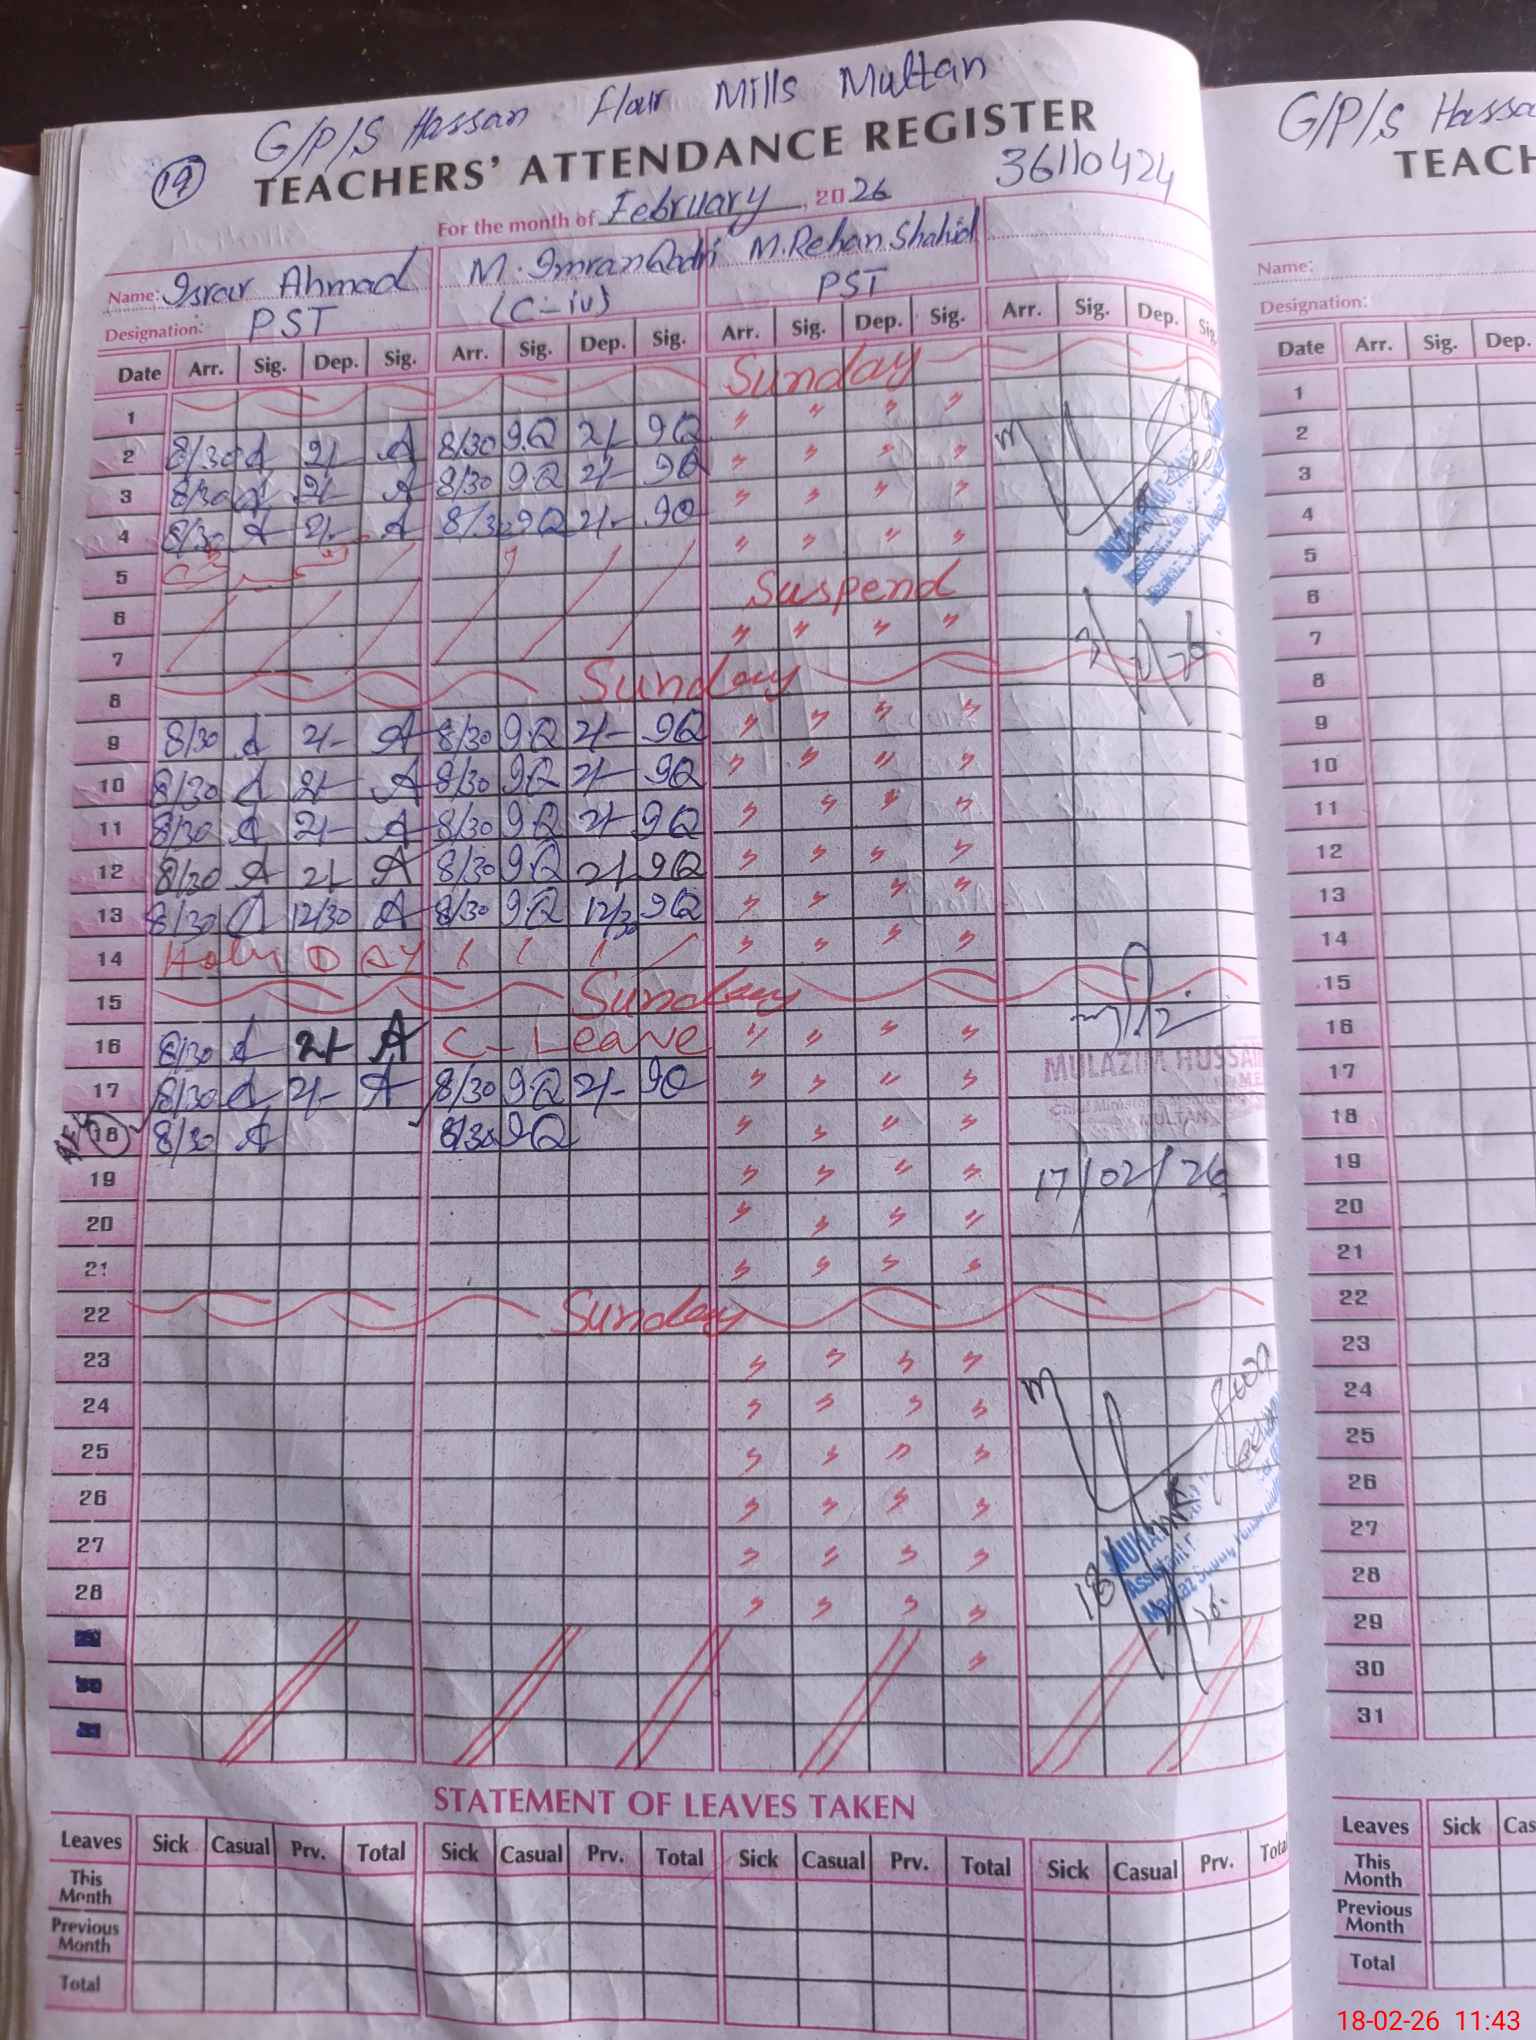 G/P/S Hassan Flour Mills Multan
19
TEACHERS' ATTENDANCE REGISTER
36110424
For the month of February, 2026
Name: Israr Ahmad M. Imran Qadri M. Rehan Shahid
Designation: PST (C-iv) PST
Date Arr. Sig. Dep. Sig. Arr. Sig. Dep. Sig. Arr. Sig. Dep. Sig. Arr. Sig. Dep. Sig.
1 Sunday
2 8/30 A 2/- A 8/30 9Q 2/- 9Q
3 8/30 A 2/- A 8/30 9Q 2/- 9Q
4 8/30 A 2/- A 8/30 9Q 2/- 9Q
5
6 Suspend
7
8 Sunday
9 8/30 A 2/- A 8/30 9Q 2/- 9Q
10 8/30 A 2/- A 8/30 9Q 2/- 9Q
11 8/30 A 2/- A 8/30 9Q 2/- 9Q
12 8/30 A 2/- A 8/30 9Q 2/- 9Q
13 8/30 A 12/30 A 8/30 9Q 12/30 9Q
14 Holy DAY
15 Sunday
16 8/30 A 2/- A C-Leave
MULAZIM HUSSAI
17 8/30 A 2/- A 8/30 9Q 2/- 9Q
18 8/30 A 8/30 9Q
19 17/02/26
20
21
22 Sunday
23
24
25
26
27
28
STATEMENT OF LEAVES TAKEN
Leaves Sick Casual Prv. Total Sick Casual Prv. Total Sick Casual Prv. Total Sick Casual Prv. Total
This Month
Previous Month
Total
G/P/S Hassa
TEACH
Name:
Designation:
Date Arr. Sig. Dep.
1
2
3
4
5
6
7
8
9
10
11
12
13
14
15
16
17
18
19
20
21
22
23
24
25
26
27
28
29
30
31
Leaves Sick Cas
This Month
Previous Month
Total
18-02-26 11:43